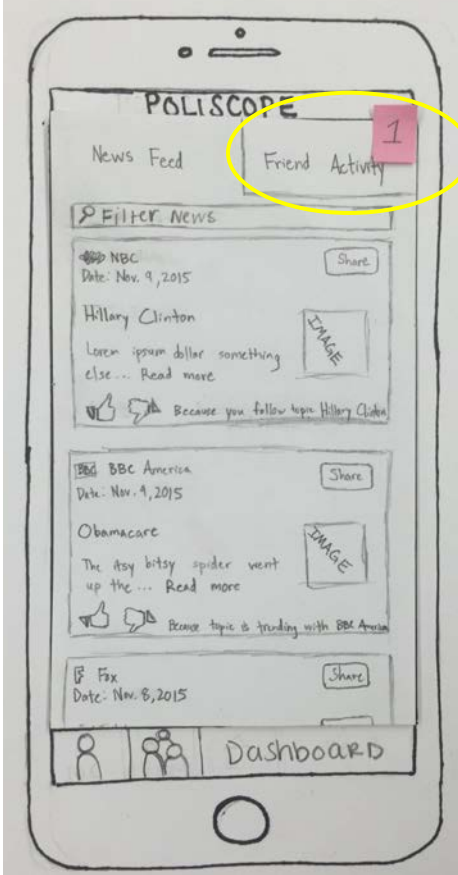 POLISCOPE
1
News Feed
Friend Activity
Filter News
NBC
Share
Date: Nov. 9, 2015
Hillary Clinton
IMAGE
Lorem ipsum dollar something
else... Read more
Because you follow topic Hillary Clinton
BBC BBC America
Share
Date: Nov. 9, 2015
Obamacare
IMAGE
The itsy bitsy spider went
up the ... Read more
Because topic is trending with BBC America
F Fox
Share
Date: Nov. 8, 2015
Dashboard